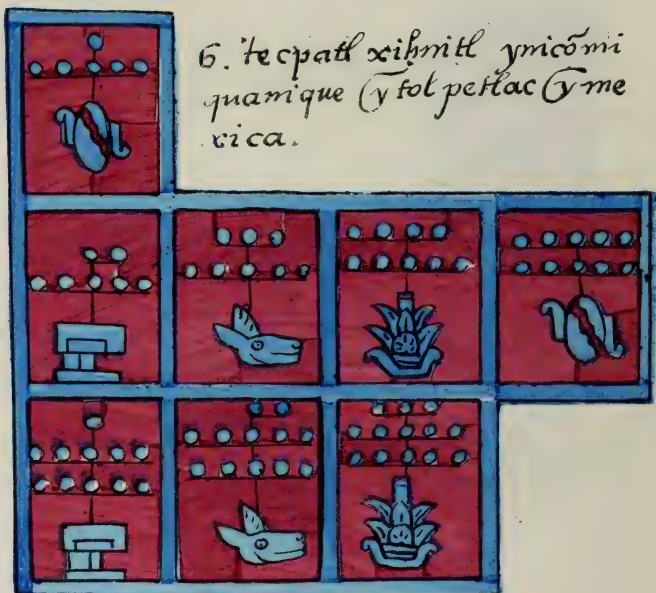 6. tecpatl xihuitl ynicōmi
quanique (y tolpetlac (y me
xica.